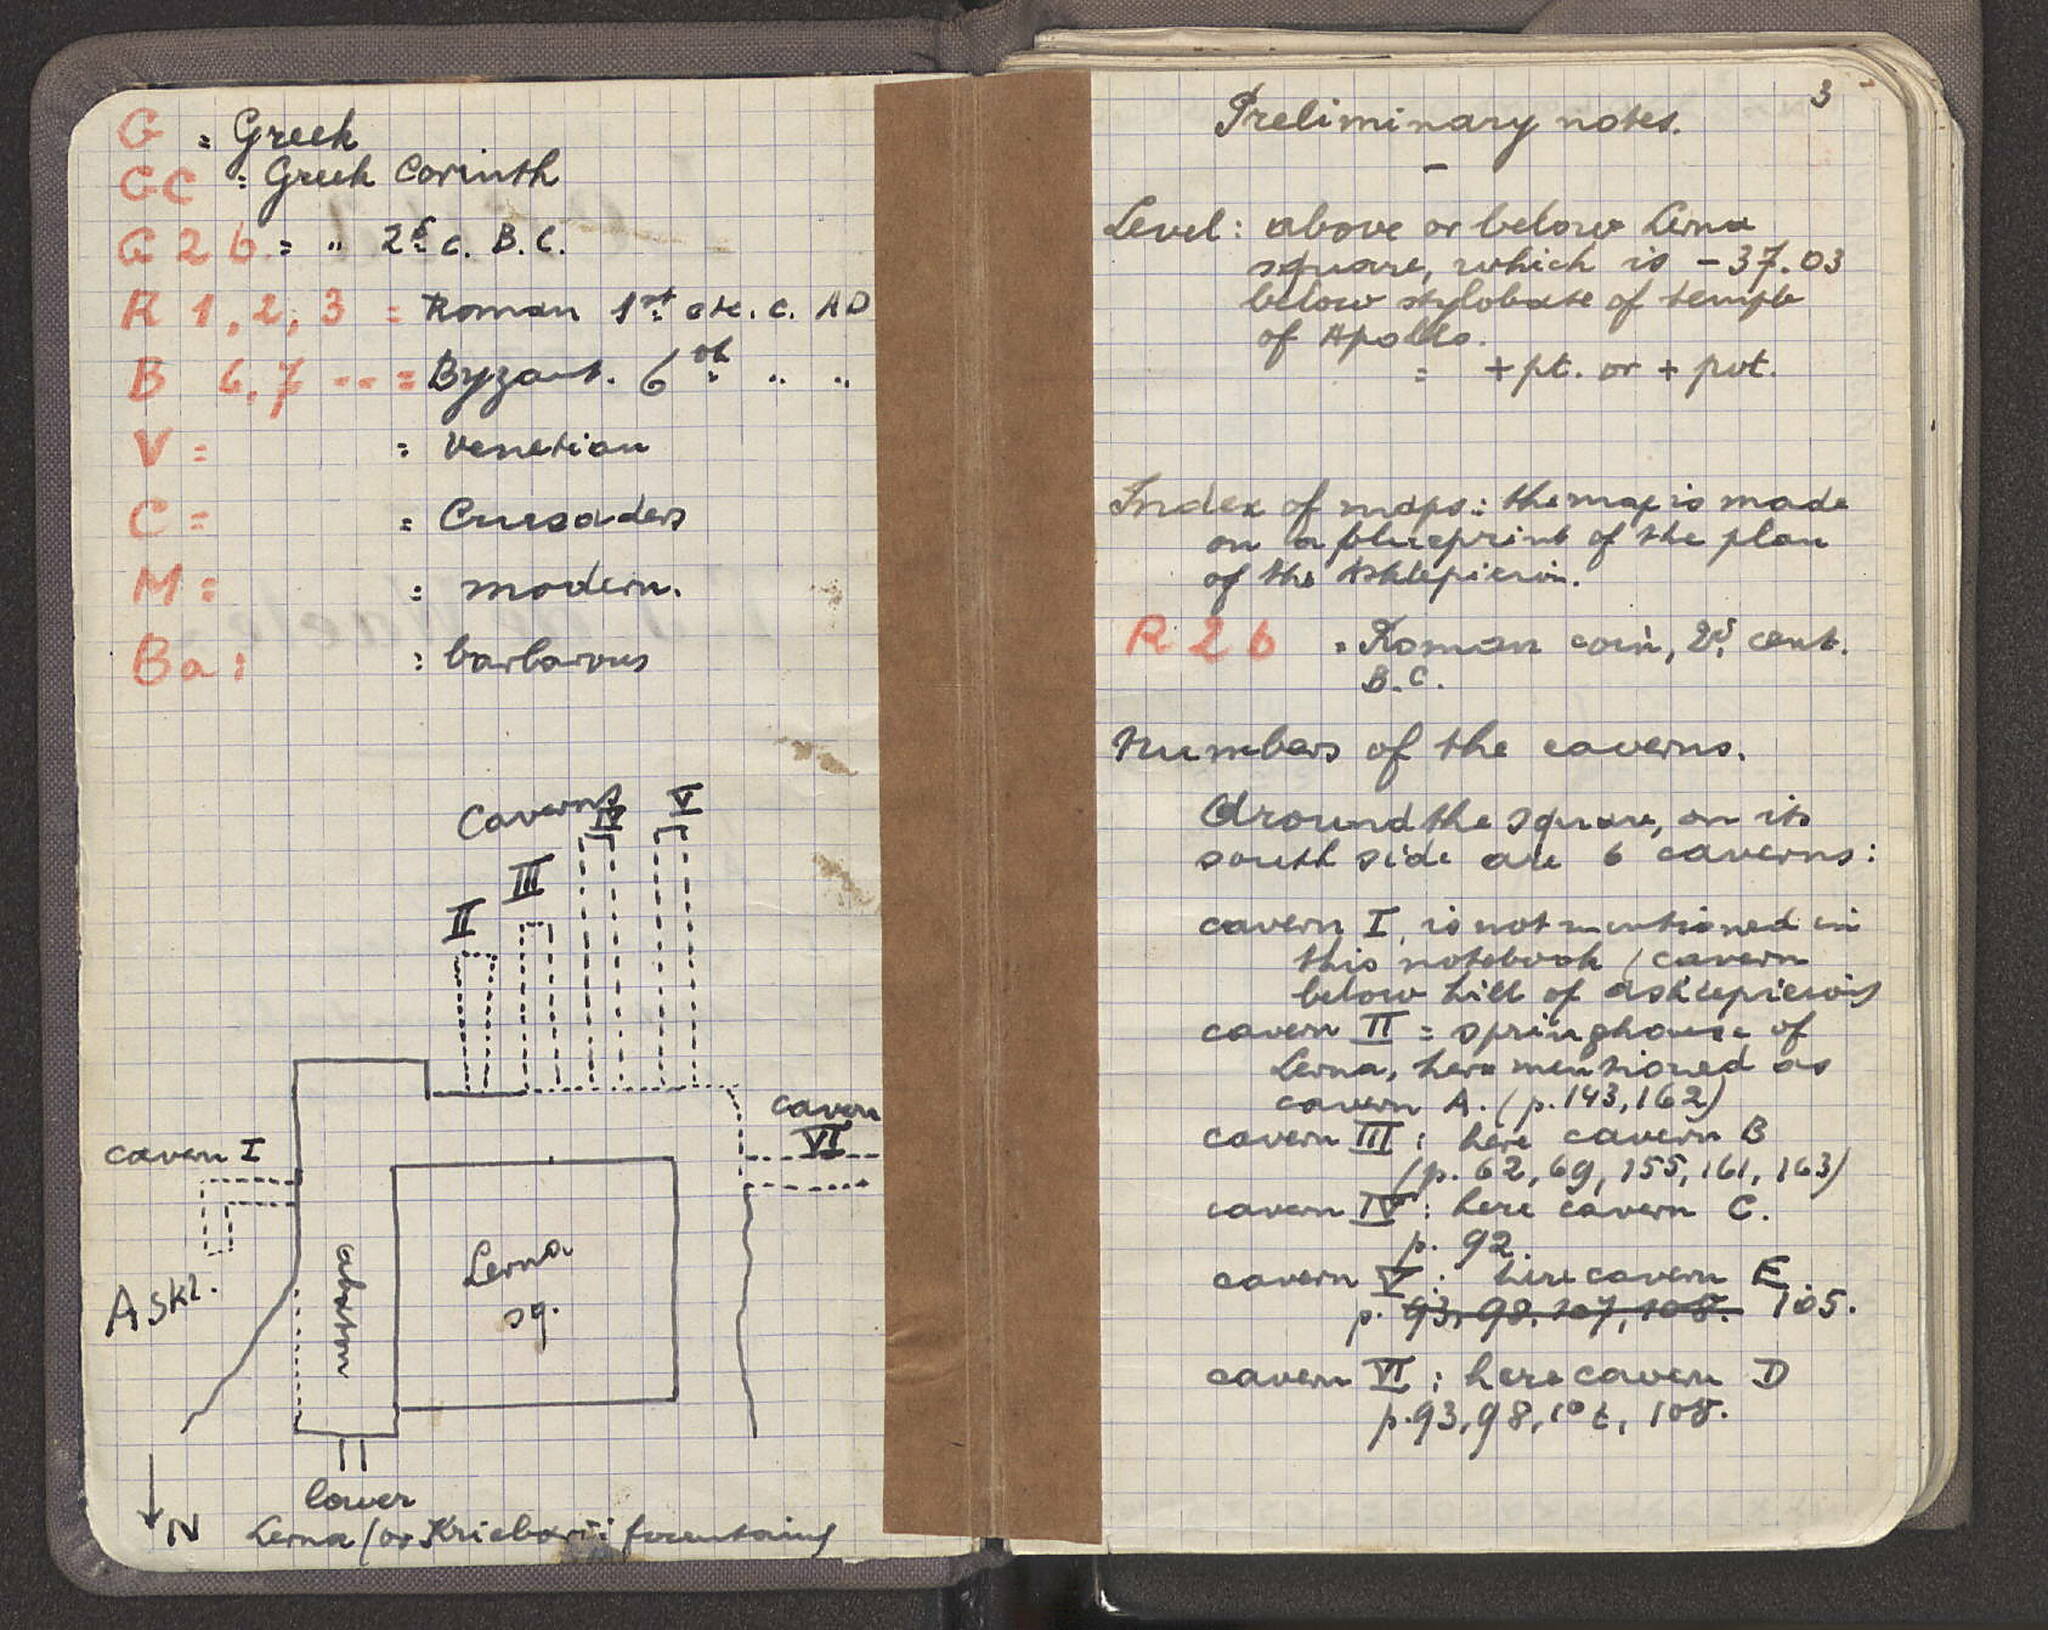 G = Greek
GC = Greek Corinth
G 2 b. = " 2d c. B.C.
R 1, 2, 3 = Roman 1st etc. c. AD
B 6, 7 --- = Byzant. 6th " "
V = = Venetian
C = = Crusaders
M = = modern.
Ba : : barbarous
Caverns
II III IV V
cavern I
cavern
VI
Askl.
abaton
Lerna
sq.
N
lower
Lerna (or fountains)
3
Preliminary notes.
Level: above or below Lerna
square, which is -37.03
below stylobate of temple
of Apollo.
= + pt. or + pvt.
Index of maps: the map is made
on a blueprint of the plan
of the Asklepieion.
R 2 b = Roman coin, 2d cent.
B.C.
Numbers of the caverns.
Around the square, on its
south side are 6 caverns:
cavern I, is not mentioned in
this notebook (cavern
below hill of asklepieion)
cavern II = springhouse of
Lerna, here mentioned as
cavern A. (p. 143, 162)
cavern III : here cavern B
(p. 62, 69, 155, 161, 163)
cavern IV : here cavern C.
p. 92.
cavern V : here cavern E
p. 93, 98, 107, 108. 105.
cavern VI : here cavern D
p. 93, 98, 108.